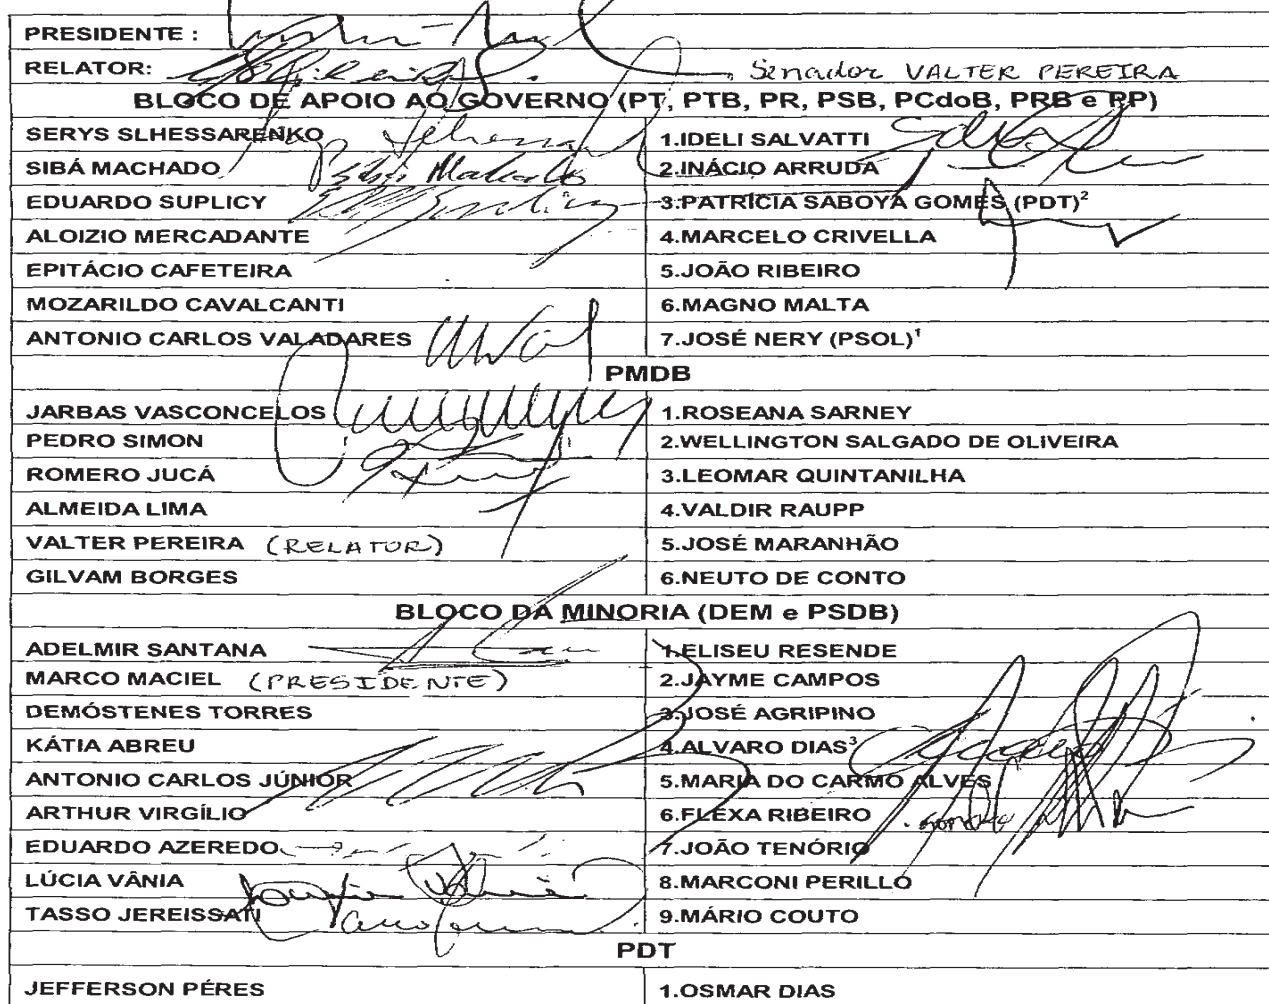 PRESIDENTE :
RELATOR: Senador VALTER PEREIRA
BLOCO DE APOIO AO GOVERNO (PT, PTB, PR, PSB, PCdoB, PRB e PP)
SERYS SLHESSARENKO 1.IDELI SALVATTI
SIBÁ MACHADO Sibá Machado 2.INÁCIO ARRUDA
EDUARDO SUPLICY 3.PATRÍCIA SABOYA GOMES (PDT)²
ALOIZIO MERCADANTE 4.MARCELO CRIVELLA
EPITÁCIO CAFETEIRA 5.JOÃO RIBEIRO
MOZARILDO CAVALCANTI 6.MAGNO MALTA
ANTONIO CARLOS VALADARES 7.JOSÉ NERY (PSOL)¹
PMDB
JARBAS VASCONCELOS 1.ROSEANA SARNEY
PEDRO SIMON 2.WELLINGTON SALGADO DE OLIVEIRA
ROMERO JUCÁ 3.LEOMAR QUINTANILHA
ALMEIDA LIMA 4.VALDIR RAUPP
VALTER PEREIRA (RELATOR) 5.JOSÉ MARANHÃO
GILVAM BORGES 6.NEUTO DE CONTO
BLOCO DA MINORIA (DEM e PSDB)
ADELMIR SANTANA 1.ELISEU RESENDE
MARCO MACIEL (PRESIDENTE) 2.JAYME CAMPOS
DEMÓSTENES TORRES 3.JOSÉ AGRIPINO
KÁTIA ABREU 4.ALVARO DIAS³
ANTONIO CARLOS JÚNIOR 5.MARIA DO CARMO ALVES
ARTHUR VIRGÍLIO 6.FLEXA RIBEIRO
EDUARDO AZEREDO 7.JOÃO TENÓRIO
LÚCIA VÂNIA 8.MARCONI PERILLO
TASSO JEREISSATI 9.MÁRIO COUTO
PDT
JEFFERSON PÉRES 1.OSMAR DIAS